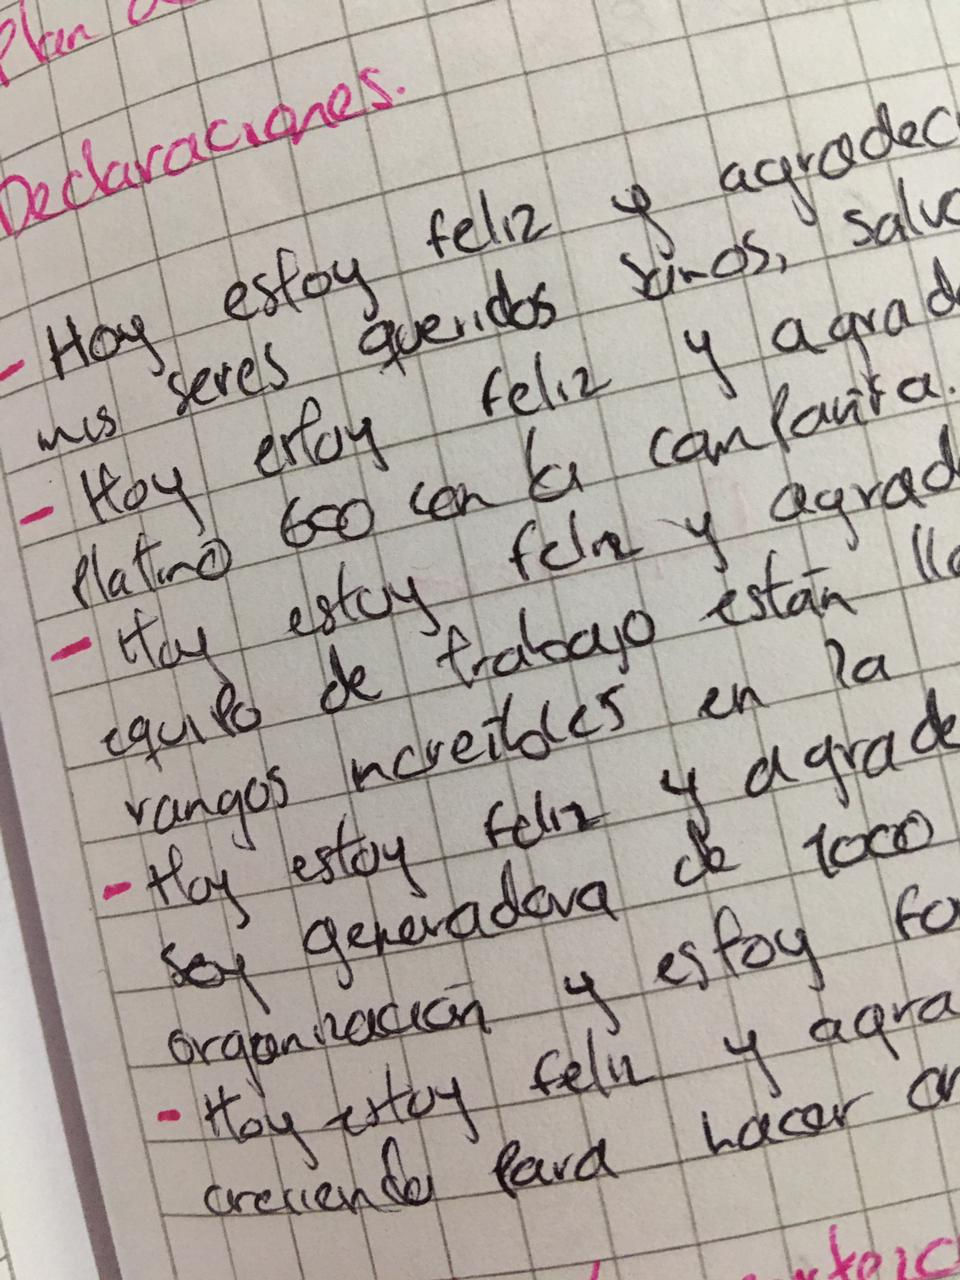 Plan
Declaraciones.
- Hoy estoy feliz y agradec
mis seres queridos sanos, salvo
- Hoy estoy feliz y agrad
Platino 600 con la compañia.
- Hoy estoy feliz y agrad
equipo de trabajo están
rangos increibles en la
- Hoy estoy feliz y agrade
soy generadora de 1000
organización y estoy
- Hoy estoy feliz y agra
creciendo para hacer